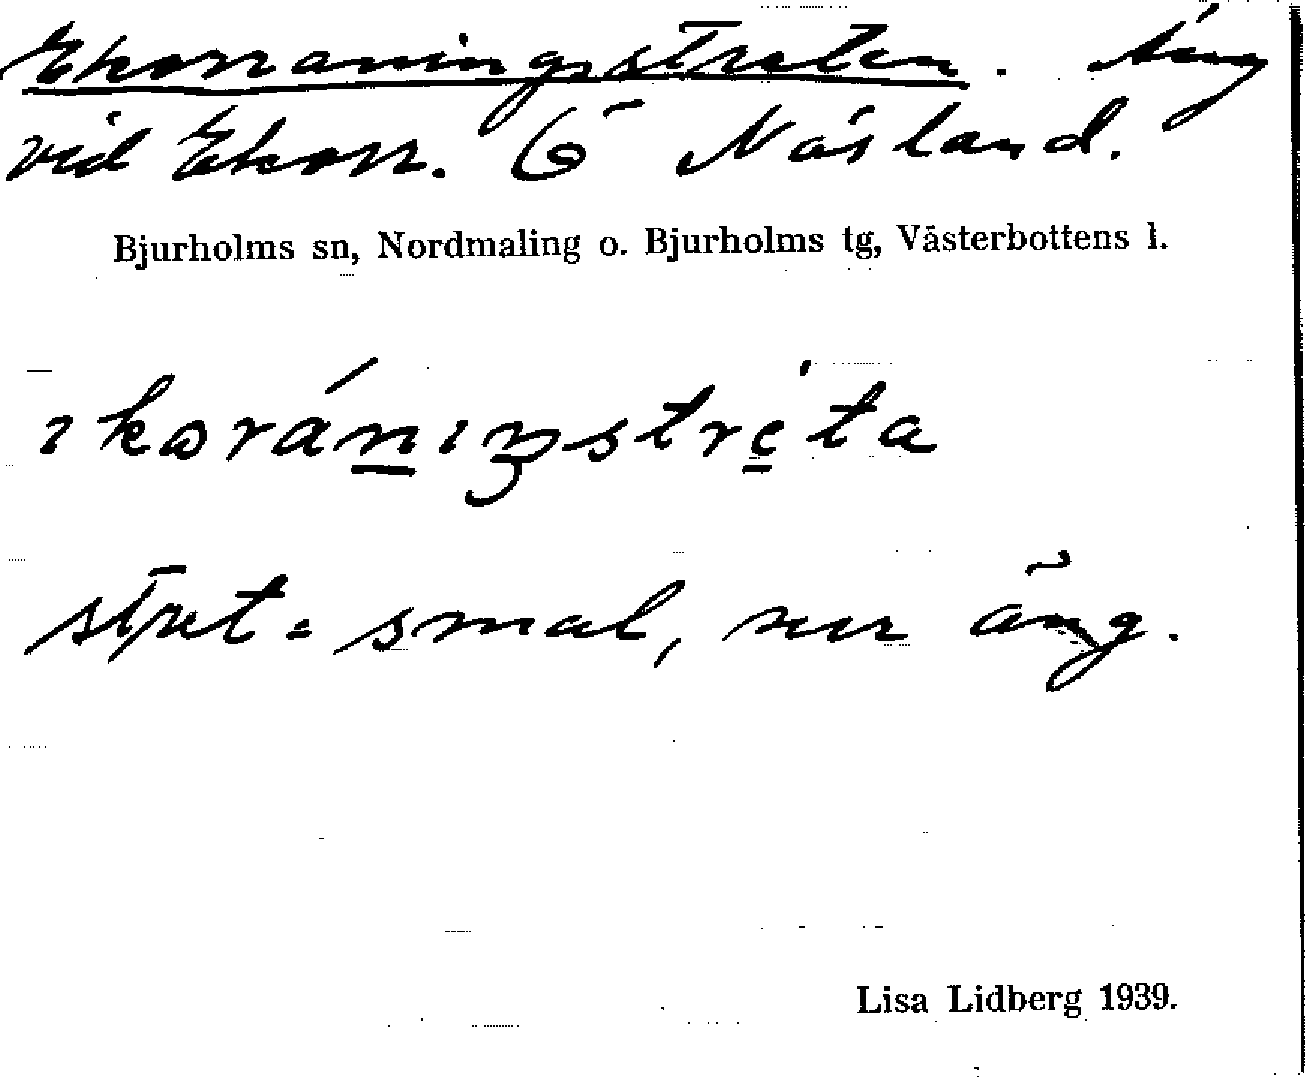 Ekorraningsstreten. Äng
vid Ekorr. Ö Näsland.
Bjurholms sn, Nordmaling o. Bjurholms tg, Västerbottens l.
stret = smal, sur äng.
Lisa Lidberg 1939.